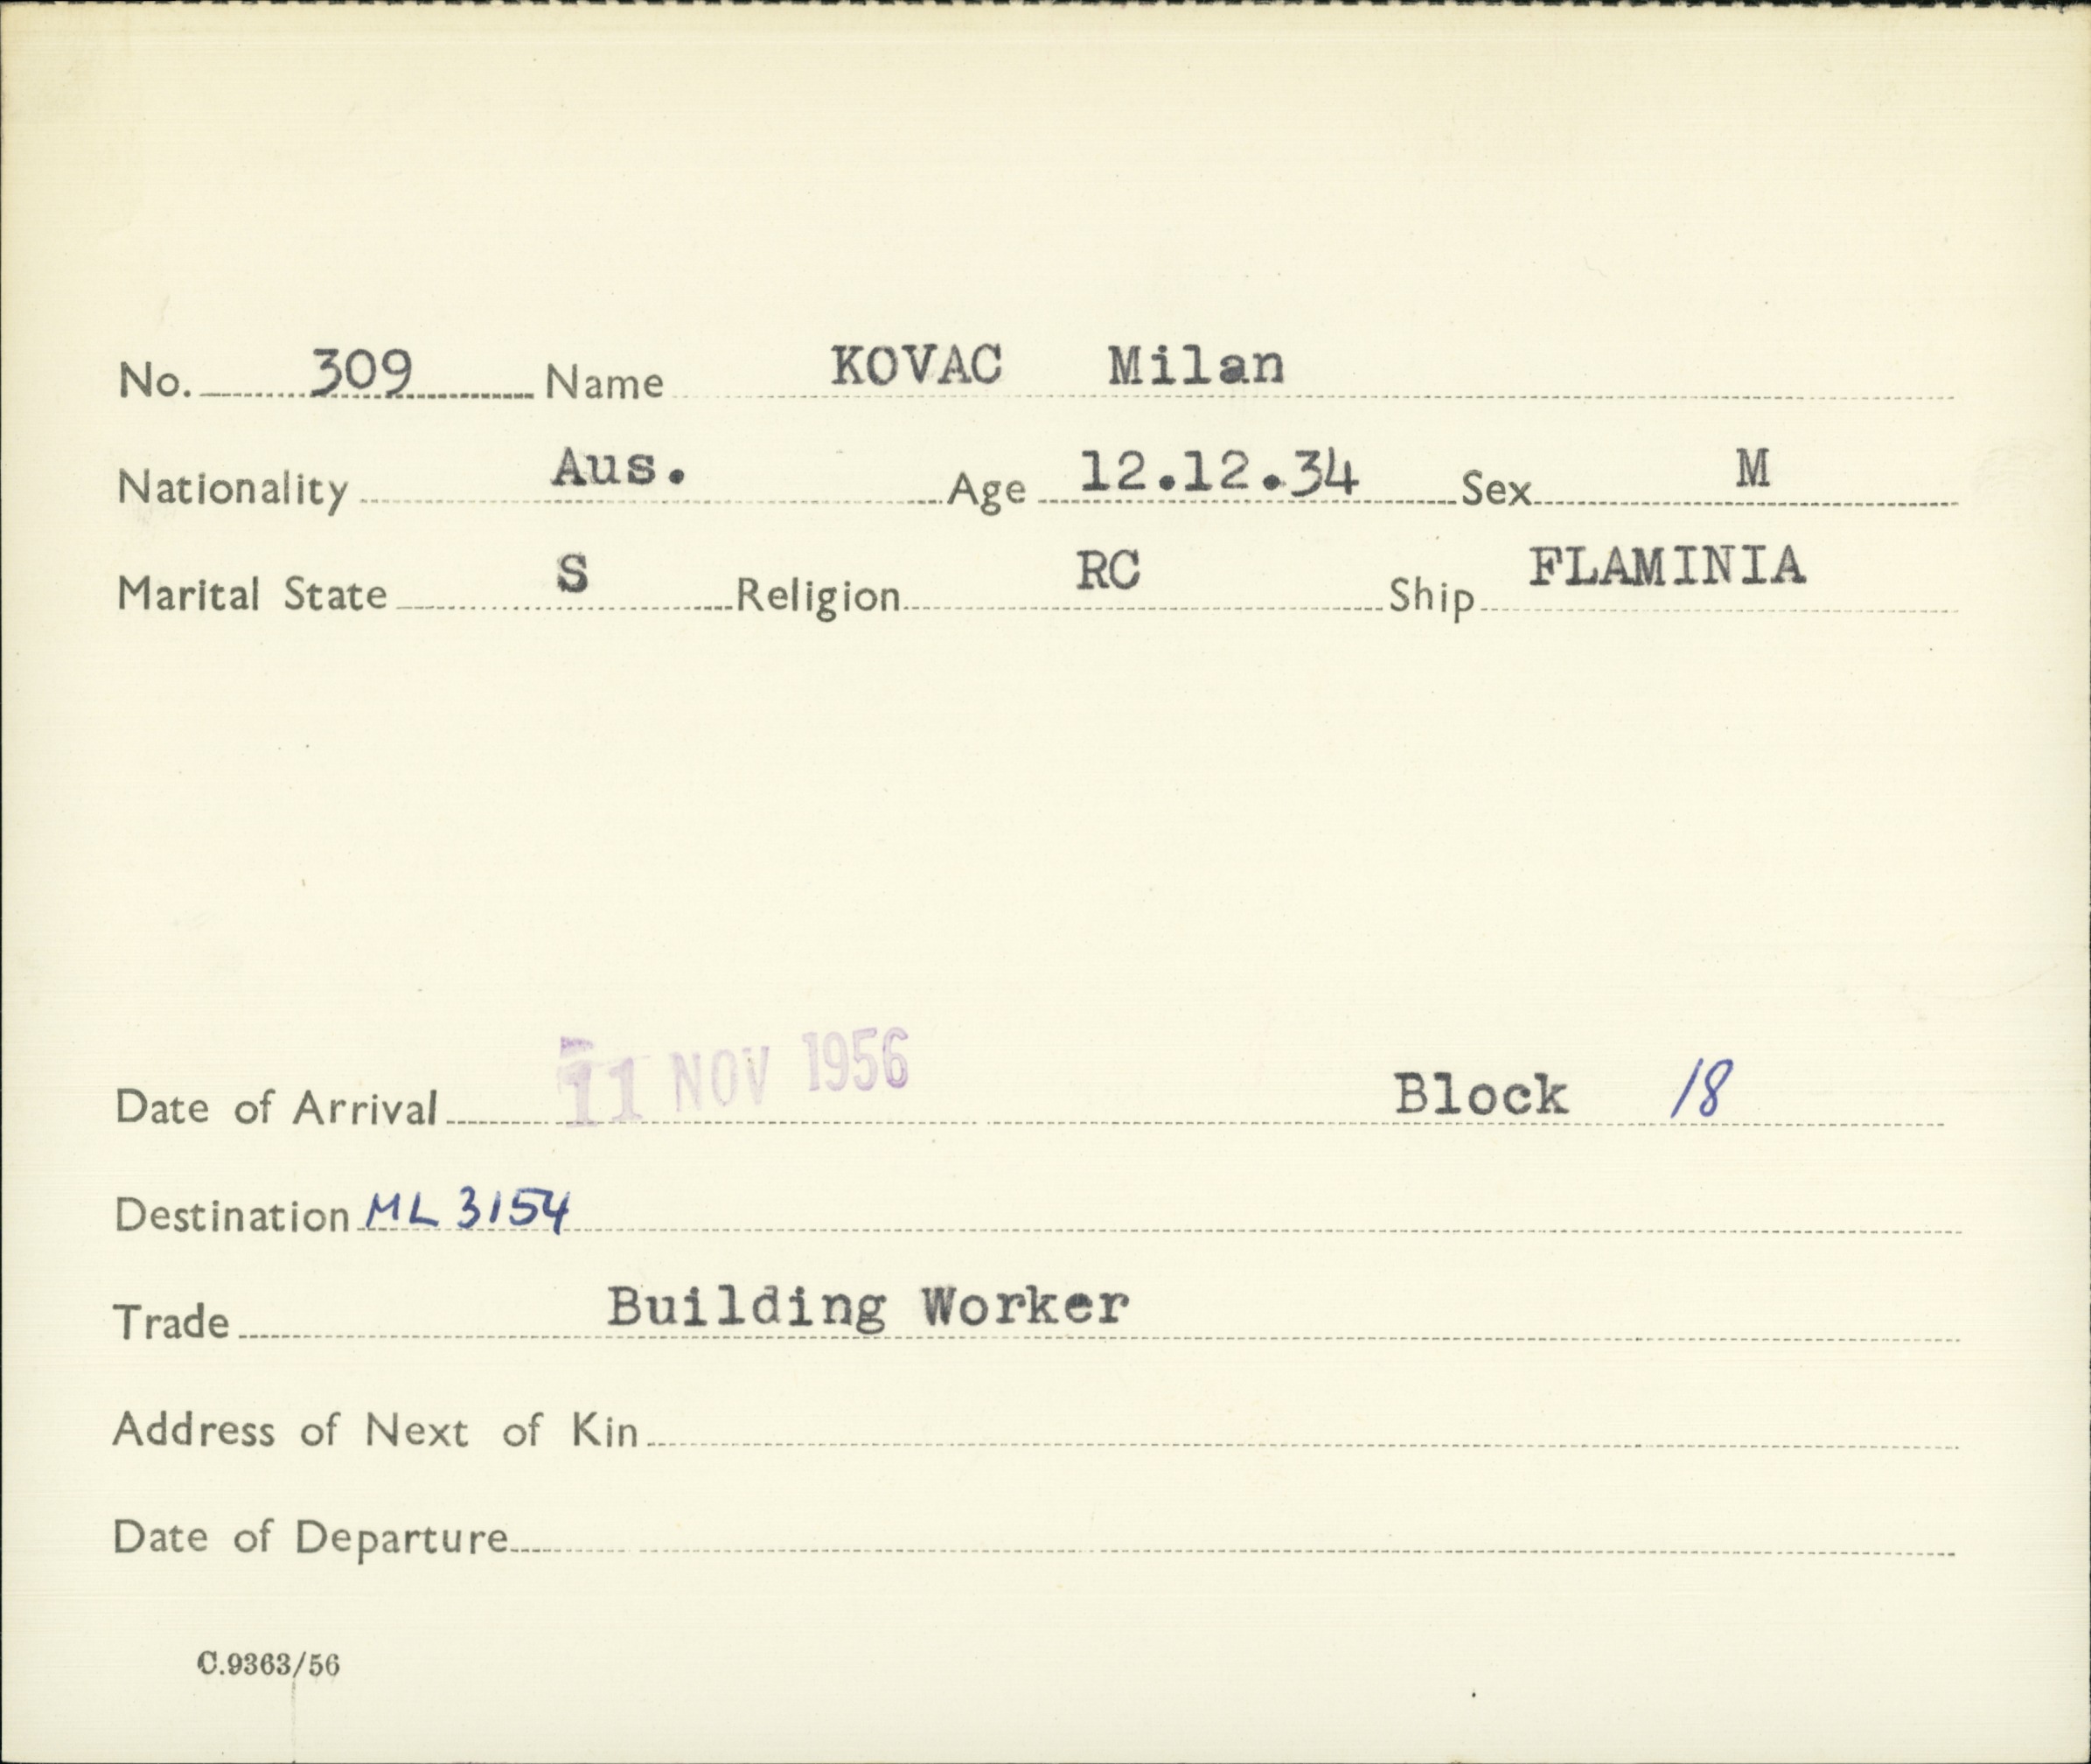 No. 309 Name KOVAC Milan
Nationality Aus. Age 12.12.34 Sex M
Marital State S Religion RC Ship FLAMINIA
Date of Arrival 11 NOV 1956 Block 18
Destination ML 3154
Trade Building Worker
Address of Next of Kin
Date of Departure
C.9363/56